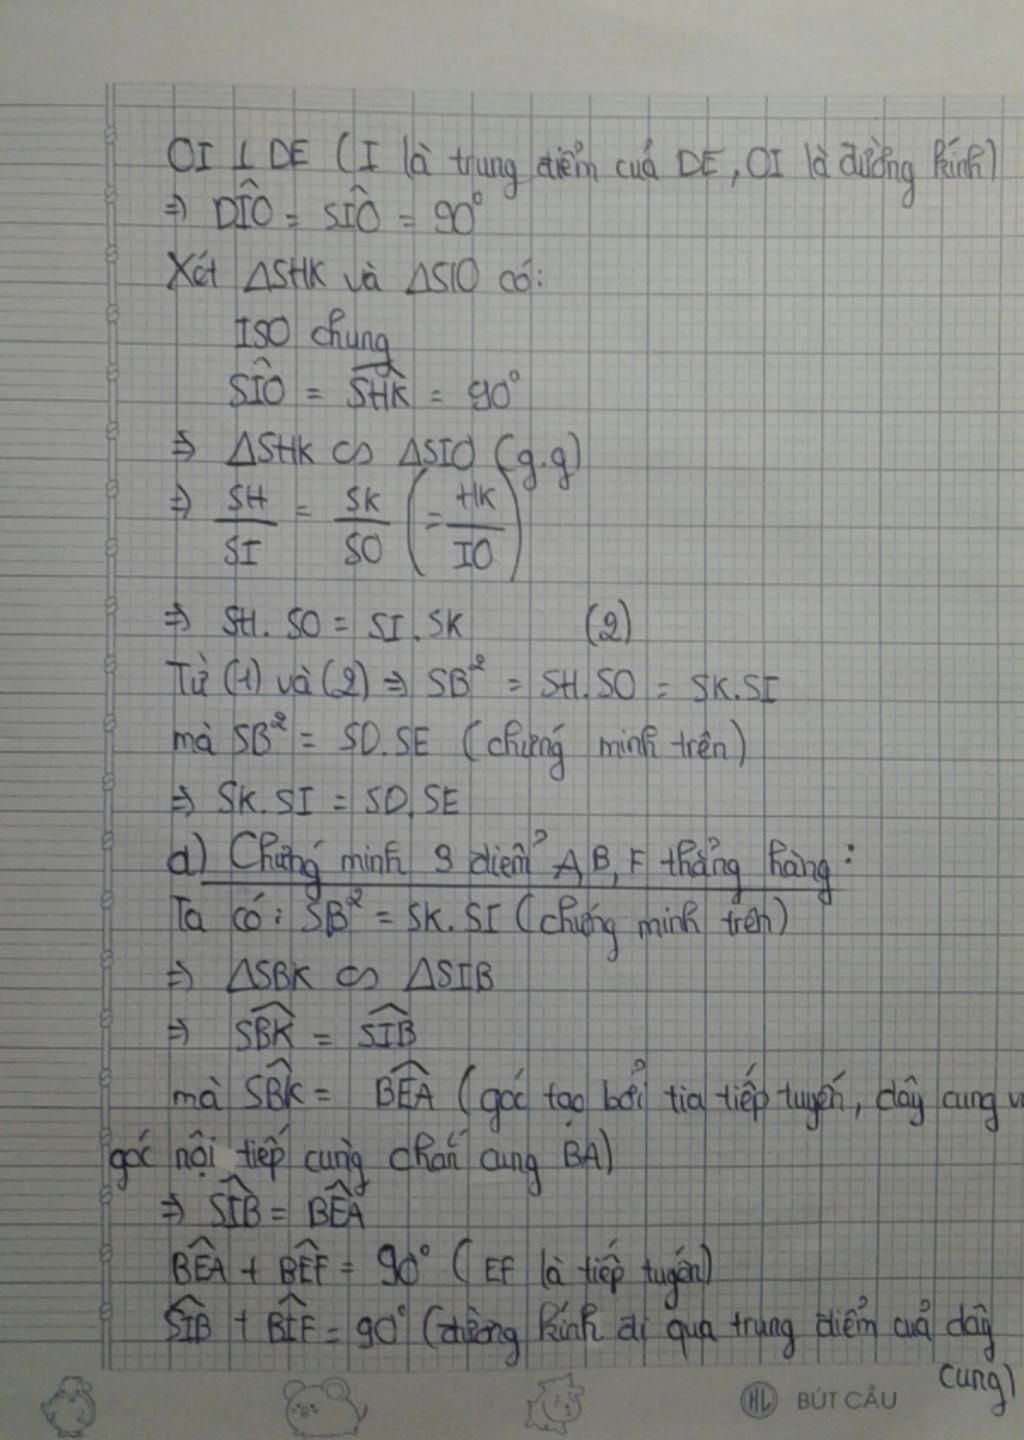 OI ⊥ DE (I là trung điểm của DE, OI là đường kính)
⇒ DIÔ = SIÔ = 90°
Xét ΔSHK và ΔSIO có:
ISO chung
SÎO = SHK = 90°
⇒ ΔSHK ∽ ΔSIO (g.g)
⇒ SH/SI = SK/SO (= HK/IO)
⇒ SH.SO = SI.SK (2)
Từ (1) và (2) ⇒ SB² = SH.SO = SK.SI
mà SB² = SD.SE (chứng minh trên)
⇒ SK.SI = SD.SE
d) Chứng minh 3 điểm A, B, F thẳng hàng:
Ta có: SB² = SK.SI (chứng minh trên)
⇒ ΔSBK ∽ ΔSIB
⇒ SBK = SIB
mà SBK = BEA (góc tạo bởi tia tiếp tuyến, dây cung v
góc nội tiếp cùng chắn cung BA)
⇒ SIB = BEA
BEA + BEF = 90° (EF là tiếp tuyến)
SIB + BIF = 90° (đường kính đi qua trung điểm của dây
cung)
HL BÚT CẦU